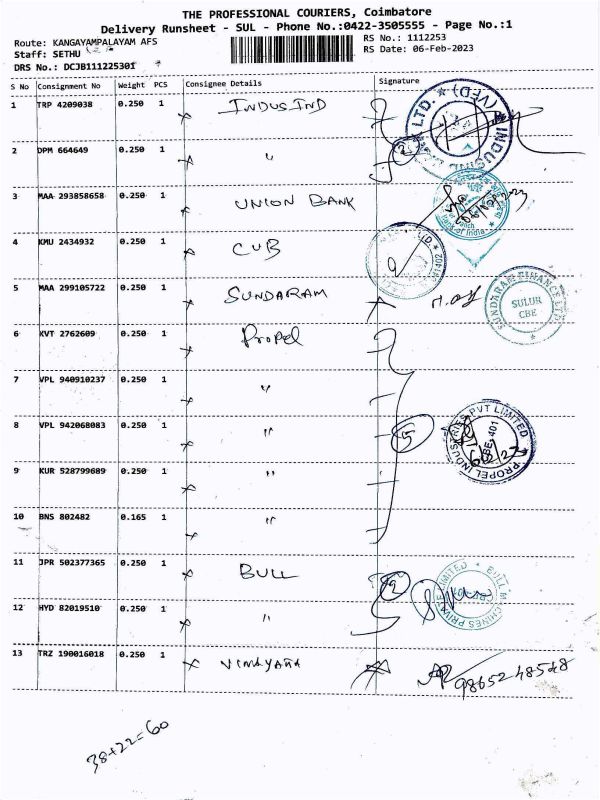 THE PROFESSIONAL COURIERS, Coimbatore
Delivery Runsheet - SUL - Phone No.:0422-3505555 - Page No.:1
Route: KANGAYAMPALAYAM AFS RS No.: 1112253
Staff: SETHU RS Date: 06-Feb-2023
DRS No.: DCJB111225301
S No Consignment No Weight PCS Consignee Details Signature
1 TRP 4209038 0.250 1 INDUSIND
2 DPM 664649 0.250 1 "
3 MAA 293858658 0.250 1 UNION BANK
4 KMU 2434932 0.250 1 CUB
5 MAA 299105722 0.250 1 SUNDARAM
SUNDARAM FINANCE LTD
SULUR
CBE
6 KVT 2762609 0.250 1 Propel
7 VPL 940910237 0.250 1 "
8 VPL 942068083 0.250 1 " 5
PROPEL INDUSTRIES PVT LIMITED
CBE-401
9 KUR 528799689 0.250 1 "
10 BNS 802482 0.165 1 "
11 JPR 502377365 0.250 1 BULL 2
BULL MACHINES PRIVATE LIMITED
12 HYD 82019510 0.250 1 "
13 TRZ 190016018 0.250 1 9865248548
38+22=60